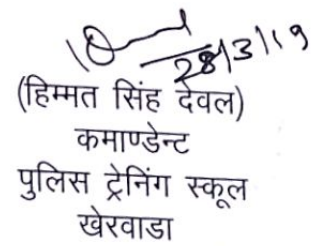 28/3/19
(हिम्मत सिंह देवल)
कमाण्डेन्ट
पुलिस ट्रेनिंग स्कूल
खेरवाडा